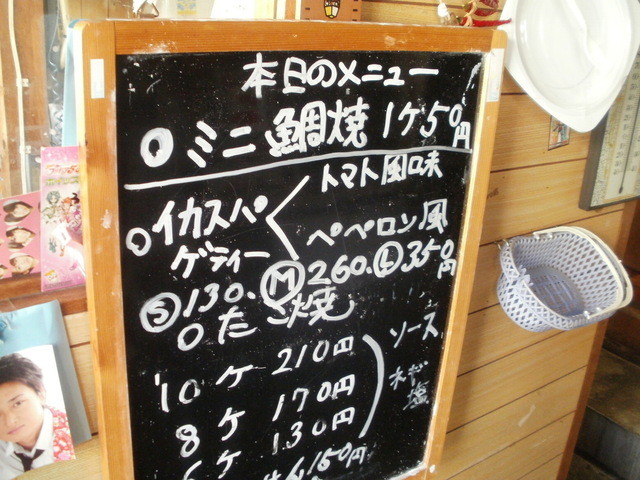 本日のメニュー
○ミニ鯛焼 1ケ50円
○イカスパゲティー < トマト風味
ペペロン風
Ⓢ130. Ⓜ260. Ⓛ350円
○たこ焼
10ケ 210円
8ケ 170円
6ケ 130円
ソース
ネギ塩